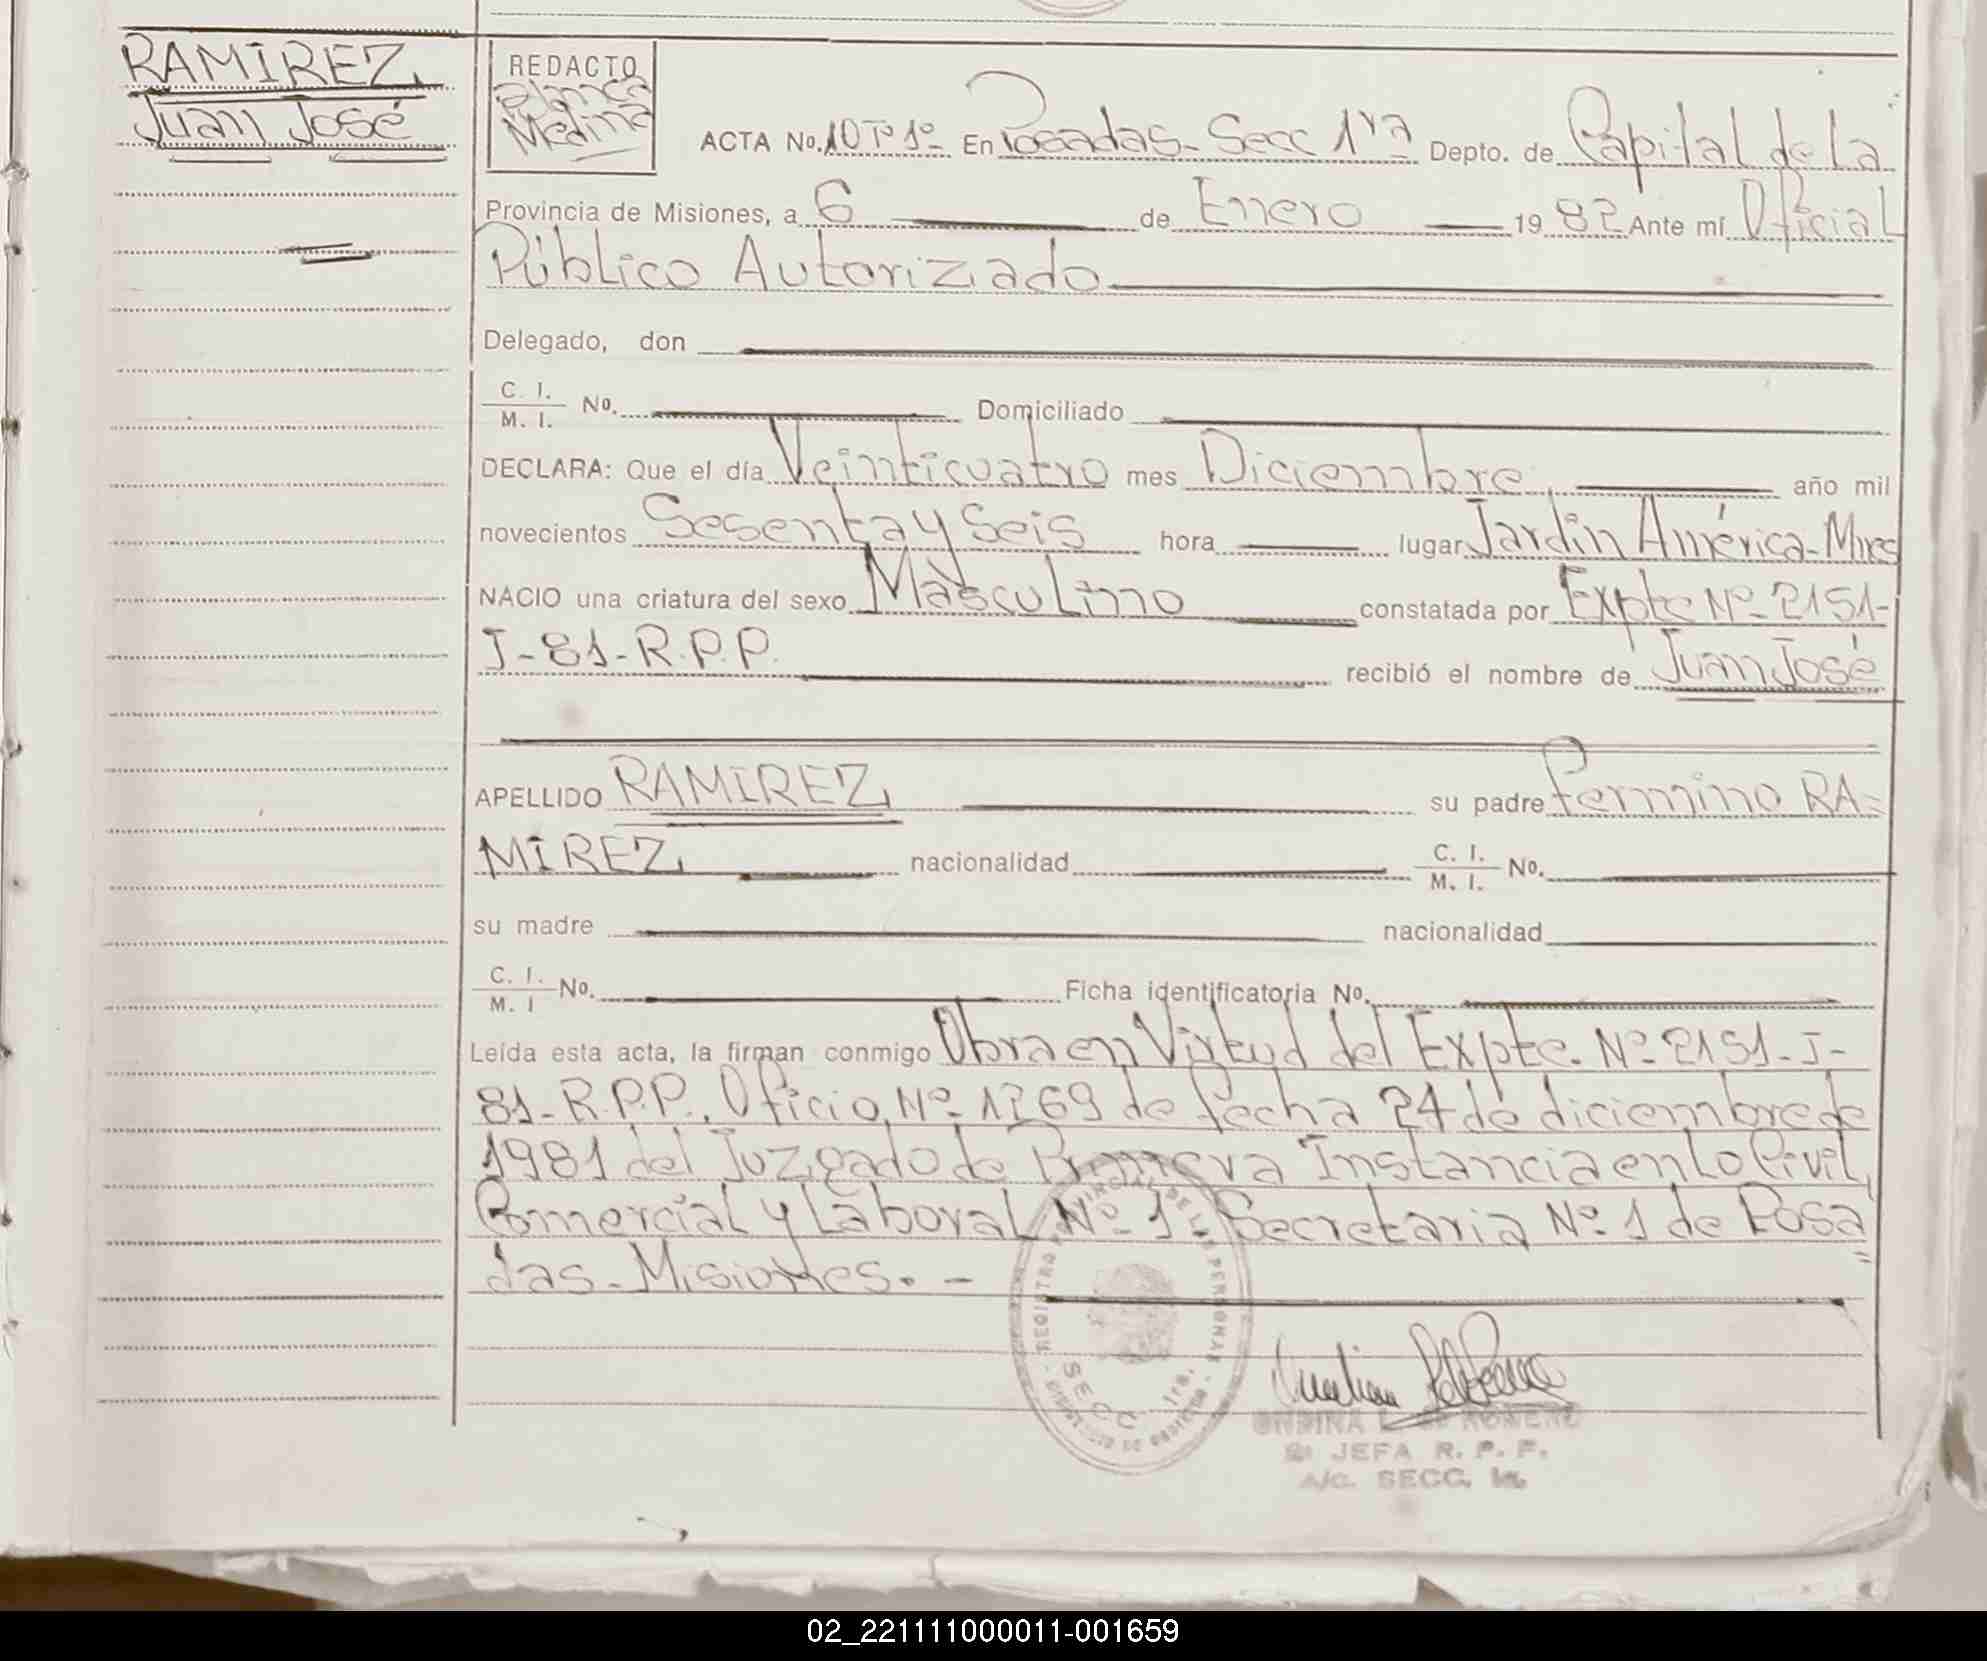 RAMIREZ,
Juan José
REDACTO
Blanca
Medina
ACTA No. 10 Tº 1º En Posadas - Secc 1ra Depto. de Capital de La
Provincia de Misiones, a 6 de Enero 1982 Ante mí Oficial
Público Autorizado
Delegado, don
C. I.
M. I. No. Domiciliado
DECLARA: Que el día Veinticuatro mes Diciembre, año mil
novecientos Sesenta y Seis hora lugar Jardín América - Mnes
NACIO una criatura del sexo Masculino constatada por Expte Nº 2151-
J-81-R.P.P. recibió el nombre de Juan José
APELLIDO RAMIREZ, su padre Fermino RA=
MIREZ, nacionalidad C. I.
M. I. No.
su madre nacionalidad
C. I.
M. I No. Ficha identificatoria No.
Leída esta acta, la firman conmigo Obra en Virtud del Expte. Nº 2151-J-
81-R.P.P., Oficio Nº 1269 de fecha 24 de diciembre de
1981 del Juzgado de Primera Instancia en lo Civil,
Comercial y Laboral Nº 1. Secretaria Nº 1 de Posa=
das - Misiones. -
REGISTRO PROVINCIAL DE LAS PERSONAS
SECC. 1ra.
JEFA R. P. P.
A/C. SECC. 1a.
02_221111000011-001659